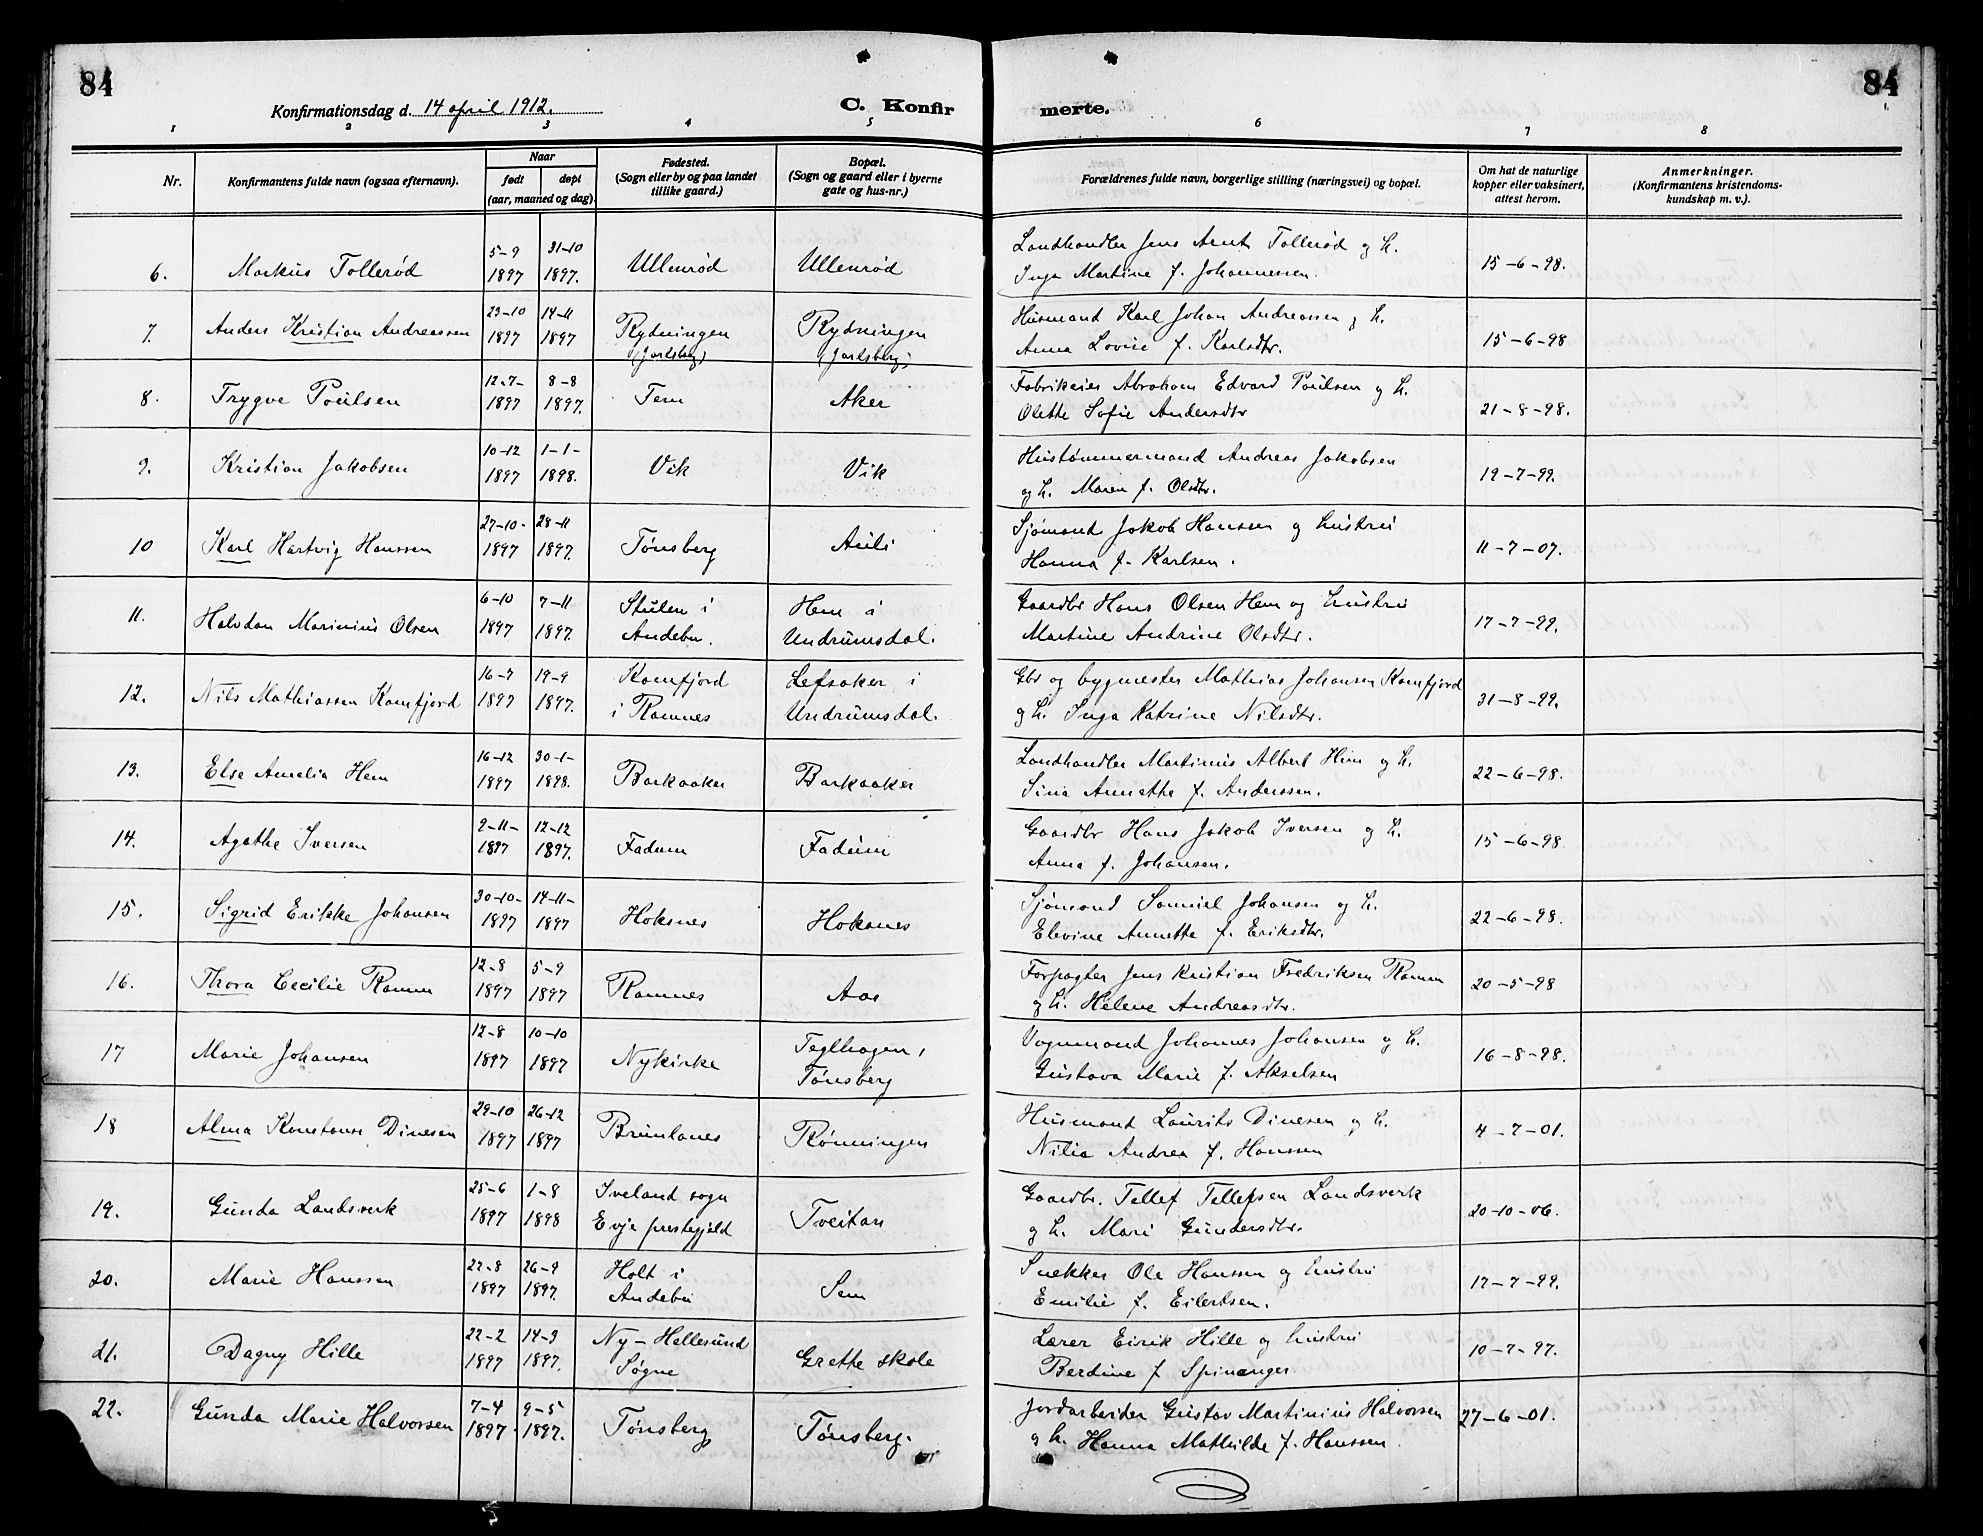 84
84
Konfirmationsdag d. 14 april 1912.
C. Konfir
merte.
1 2 3 4 5 6 7 8
Nr.
Konfirmantens fulde navn (ogsaa efternavn).
Naar
født
døpt
(aar, maaned og dag).
Fødested.
(Sogn eller by og paa landet
tillike gaard.)
Bopæl.
(Sogn og gaard eller i byerne
gate og hus-nr.)
Forældrenes fulde navn, borgerlige stilling (næringsvei) og bopæl.
Om hat de naturlige
kopper eller vaksinert,
attest herom.
Anmerkninger.
(Konfirmantens kristendoms-
kundskap m. v.).
6. Markus Tollerød 5-9 1897 31-10 1897. Ullenrød Ullenrød
Landhandler Jens Arnt Tollerød og h.
Inga Martine f. Johannessen. 15-6-98.
7. Anders Kristian Andreassen 23-10 1897 14-11 1897 Rydningen (Jarlsberg) Rydningen (Jarlsberg)
Husmand Karl Johan Andreassen og h.
Anna Lovise f. Karlsdtr. 15-6-98
8. Trygve Poulsen 12-7- 1897 8-8 1897. Tem Aker
Fabrikeier Abraham Edvard Poulsen og h.
Olette Sofie Andersdtr 21-8-98.
9. Kristian Jakobsen 10-12 1897 1-1- 1898. Vik Vik
Hustømmermand Andreas Jakobsen
og h. Maren f. Olsdtr. 19-7-99.
10 Karl Hartvig Hanssen 27-10- 1897 28-11 1897. Tønsberg Auli
Sjømand Jakob Hanssen og hustru
Hanna f. Karlsen. 11-7-07.
11. Halvdan Marinius Olsen 6-10 1897 7-11 1897. Stulen i Andebu. Hem i Undrumsdal.
Gaardbr Hans Olsen Hem og hustru
Martine Andrine Olsdtr. 17-7-99.
12. Nils Mathiassen Kamfjord 16-7 1897 19-9 1897. Kamfjord i Ramnes Lefsaker i Undrumsdal.
Gbr og bygmester Mathias Johansen Kamfjord
og h. Inga Katrine Nilsdtr. 31-8-99.
13. Else Amalia Hem 16-12 1897 30-1- 1898. Barkaaker Barkaaker
Landhandler Martinius Albert Hem og h.
Sina Annette f. Anderssen. 22-6-98.
14. Agathe Iversen 2-11- 1897 12-12 1897. Fadum Fadum
Gaardbr Hans Jakob Iversen og h.
Anna f. Johansen. 15-6-98
15. Sigrid Erikke Johansen 30-10- 1897 14-11- 1897 Hoksnes Hoksnes
Sjømand Samuel Johansen og h.
Elevine Annette f. Eriksdtr. 22-6-98.
16. Thora Cecilie Ramm 12-8 1897 5-9 1897 Ramnes Aas
Forpagter Jens Kristian Fredriksen Ramm
og h. Helene Andreasdtr. 20-5-98
17 Marie Johansen 12-8 1897 10-10 1897 Nykirke Teglhagen, Tønsberg
Vognmand Johannes Johansen og h.
Gustava Marie f. Akselsen 16-8-98.
18 Alma Konstanse Dinesen 29-10 1897 26-12 1897 Brunlanes Rønningen
Husmand Laurits Dinesen og h.
Nilia Andrea f. Hanssen 4-7-01.
19. Gunda Landsverk 25-6 1897 1-8 1898 Iveland sogn Evje prestegjeld Tveitan
Gaardbr. Tellef Tellefsen Landsverk
og h. Mari Gundersdtr. 20-10-06.
20. Marie Hanssen 22-8 1897 26-9 1897. Holt i Andebu Sem
Snekker Ole Hanssen og hustru
Emilie f. Eilertsen. 17-7-99.
21. Dagny Hille 22-2 1897 14-3 1897. Ny-Hellesund Søgne Grette skole
Lærer Eirik Hille og hustru
Berdine f Spinanger 10-7-97.
22. Gunda Marie Halvorsen 7-4 1897. 9-5 1897. Tønsberg Tønsberg.
Jordarbeider Gustav Martinius Halvorsen
og h. Hanna Mathilde f. Hanssen. 27-6-01.